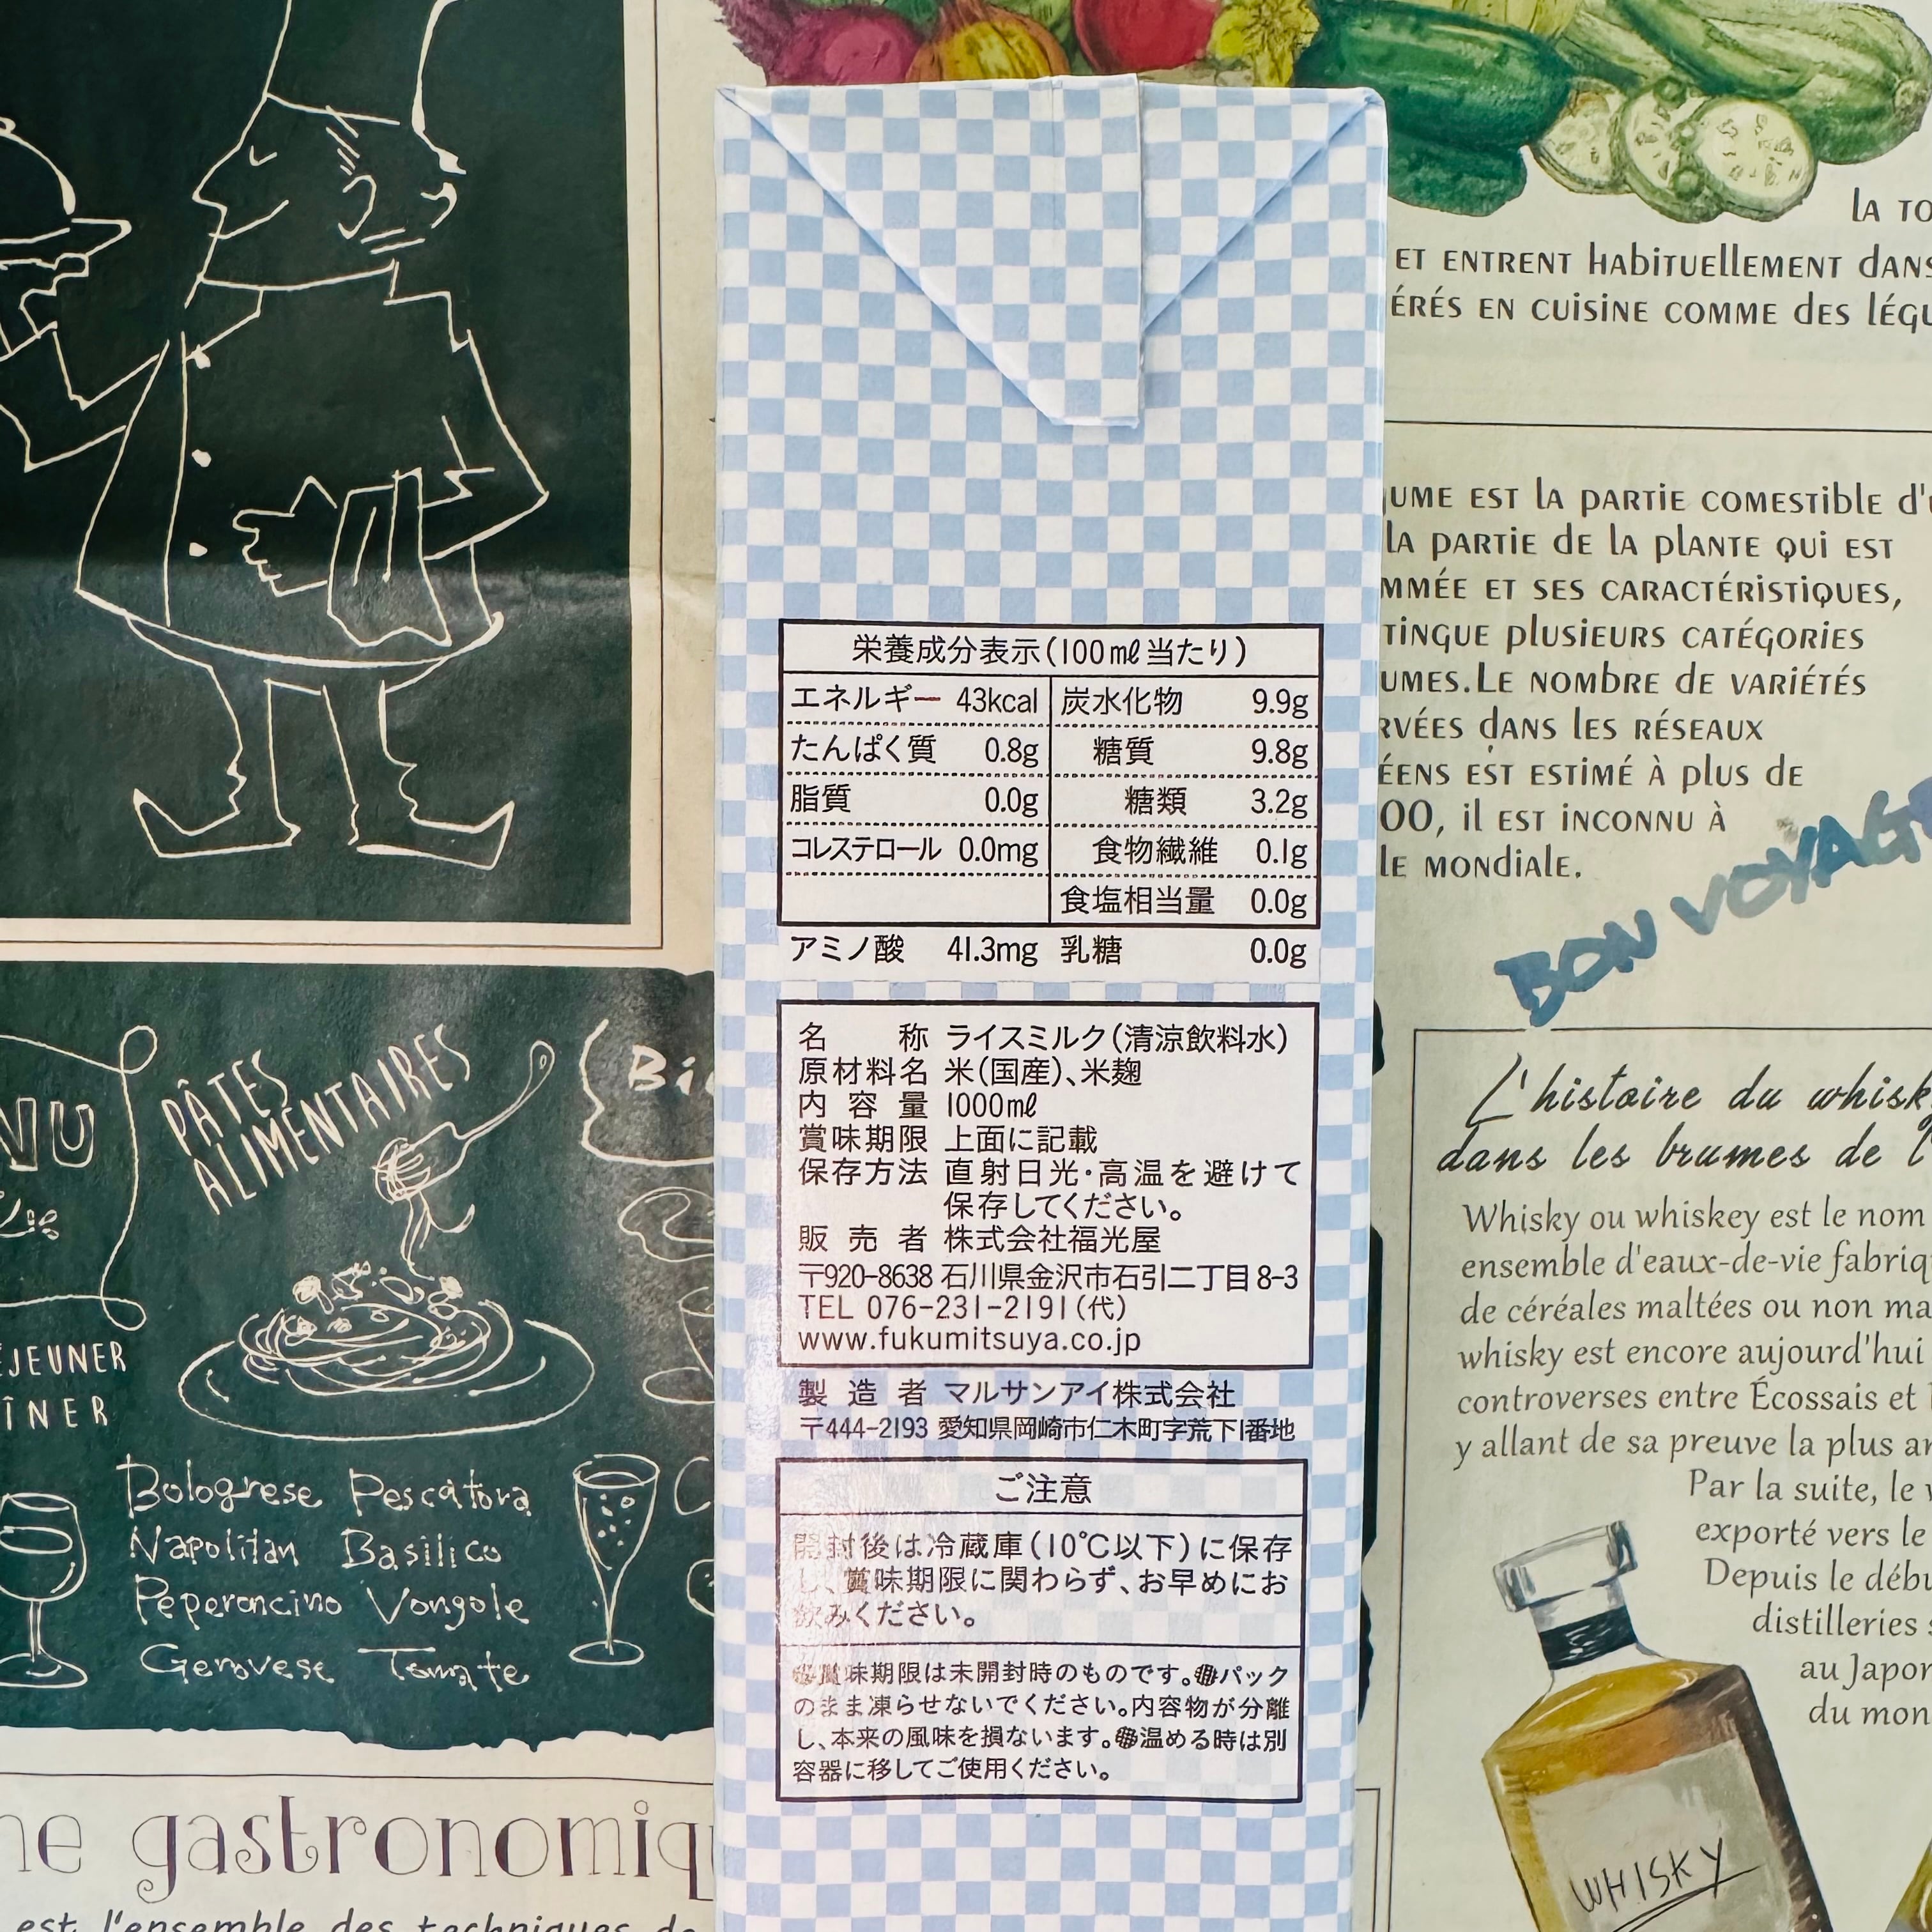 栄養成分表示(100mℓ当たり)
エネルギー 43kcal
たんぱく質 0.8g
脂質 0.0g
コレステロール 0.0mg
炭水化物 9.9g
糖質 9.8g
糖類 3.2g
食物繊維 0.1g
食塩相当量 0.0g
アミノ酸 41.3mg 乳糖 0.0g
名称 ライスミルク(清涼飲料水)
原材料名 米(国産)、米麹
内容量 1000mℓ
賞味期限 上面に記載
保存方法 直射日光・高温を避けて
保存してください。
販売者 株式会社福光屋
〒920-8638 石川県金沢市石引二丁目8-3
TEL 076-231-2191(代)
www.fukumitsuya.co.jp
製造者 マルサンアイ株式会社
〒444-2193 愛知県岡崎市仁木町字荒下1番地
ご注意
開封後は冷蔵庫(10℃以下)に保存
し、賞味期限に関わらず、お早めにお
飲みください。
賞味期限は未開封時のものです。パック
のまま凍らせないでください。内容物が分離
し、本来の風味を損ないます。温める時は別
容器に移してご使用ください。
PÂTES
ALIMENTAIRES
Bolognese Pescatora
Napolitan Basilico
Peperoncino Vongole
Genovese Tomate
gastronomiq
est l'ensemble des techniques de
LA
ET ENTRENT HABITUELLEMENT DANS
EN CUISINE COMME DES
EST LA PARTIE COMESTIBLE
LA PARTIE DE LA PLANTE QUI EST
ET SES CARACTÉRISTIQUES,
PLUSIEURS CATÉGORIES
LE NOMBRE DE VARIÉTÉS
DANS LES RÉSEAUX
EST ESTIMÉ À PLUS DE
IL EST INCONNU À
MONDIALE.
BON VOYAGE
L'histoire du
dans les brumes de
Whisky ou whiskey est le nom
ensemble d'eaux-de-vie
de céréales maltées ou non
whisky est encore aujourd'hui
controverses entre Écossais et
y allant de sa preuve la plus
Par la suite, le
exporté vers le
Depuis le
distilleries
au
du
WHISKY